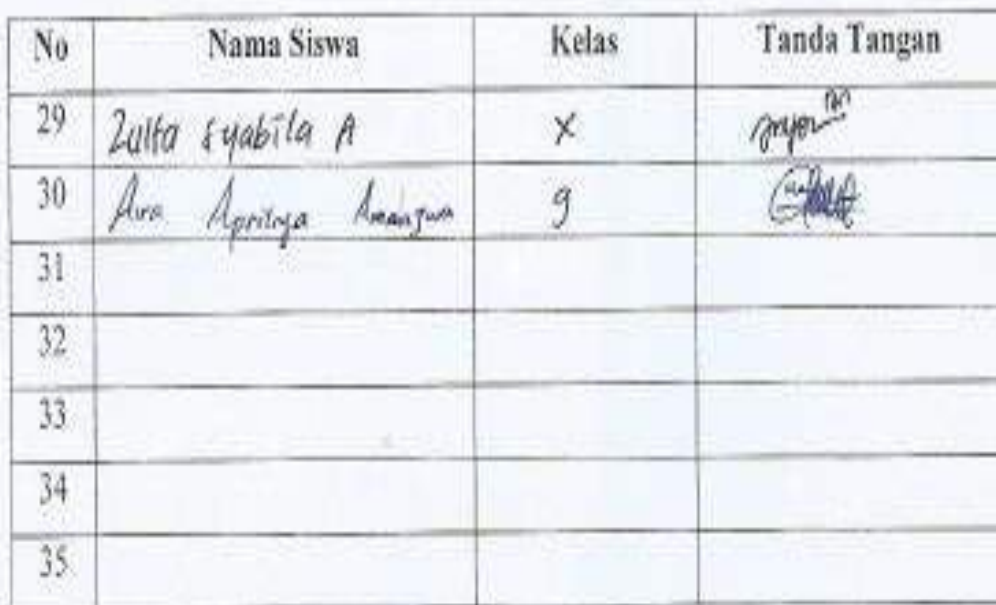 No Nama Siswa Kelas Tanda Tangan
29 Zulfa Syabila A X
30 Aira Aprilya 9
31
32
33
34
35